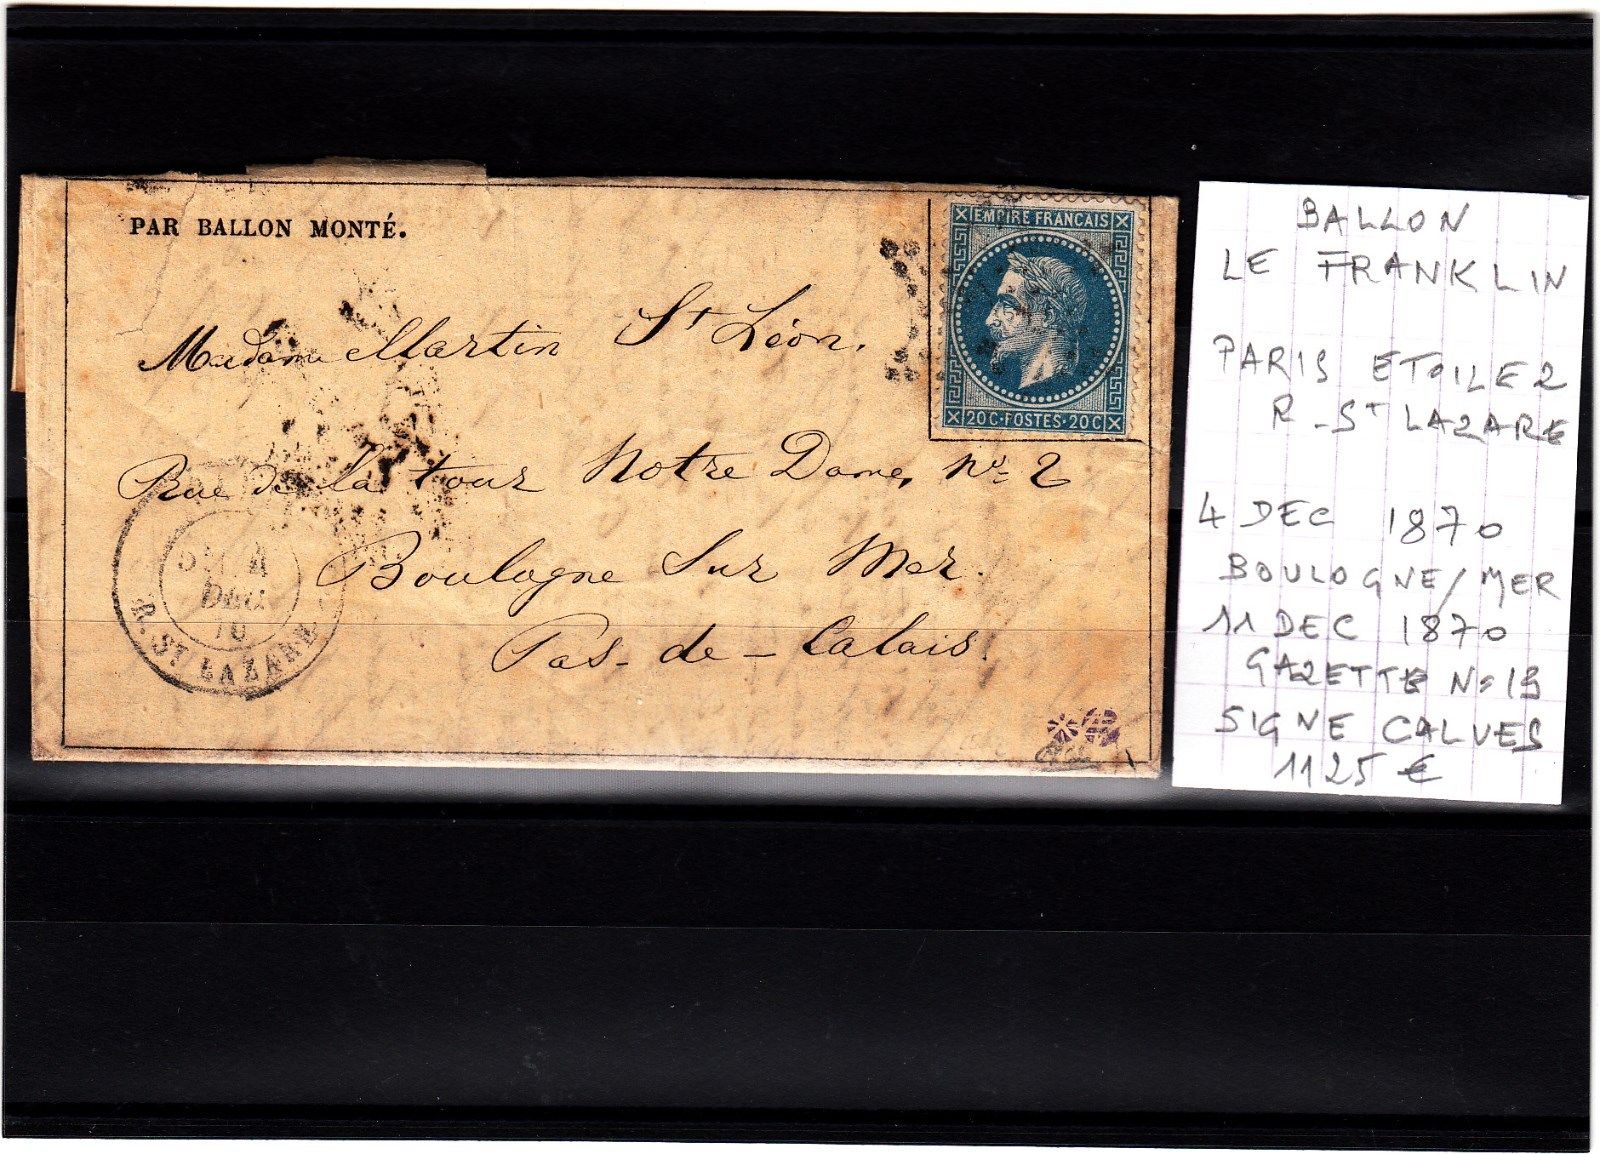 PAR BALLON MONTÉ.
EMPIRE FRANCAIS
20 C · POSTES · 20 C
Madame Martin St Léon.
Rue de la tour Notre Dame, No 2
Boulogne Sur Mer.
Pas-de-Calais.
4
DEC
70
R. ST LAZARE
BALLON
LE FRANKLIN
PARIS ETOILE 2
R-ST LAZARE
4 DEC 1870
BOULOGNE/MER
11 DEC 1870
GAZETTE N=13
SIGNE CALVES
1125 €